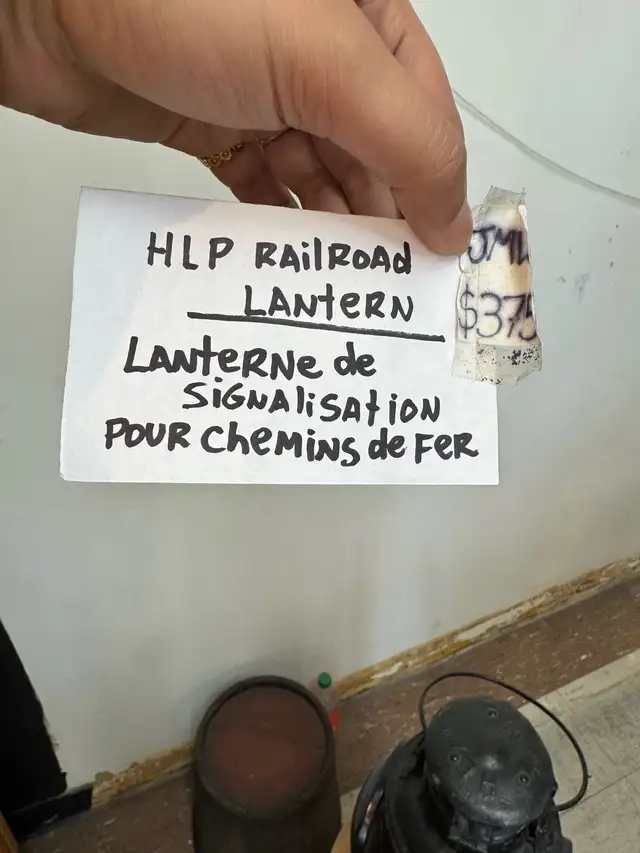 HLP RAilROAd
LANtERN
LANteRNe de
SiGNAliSAtiON
POUR CheMiNS de FeR
$375